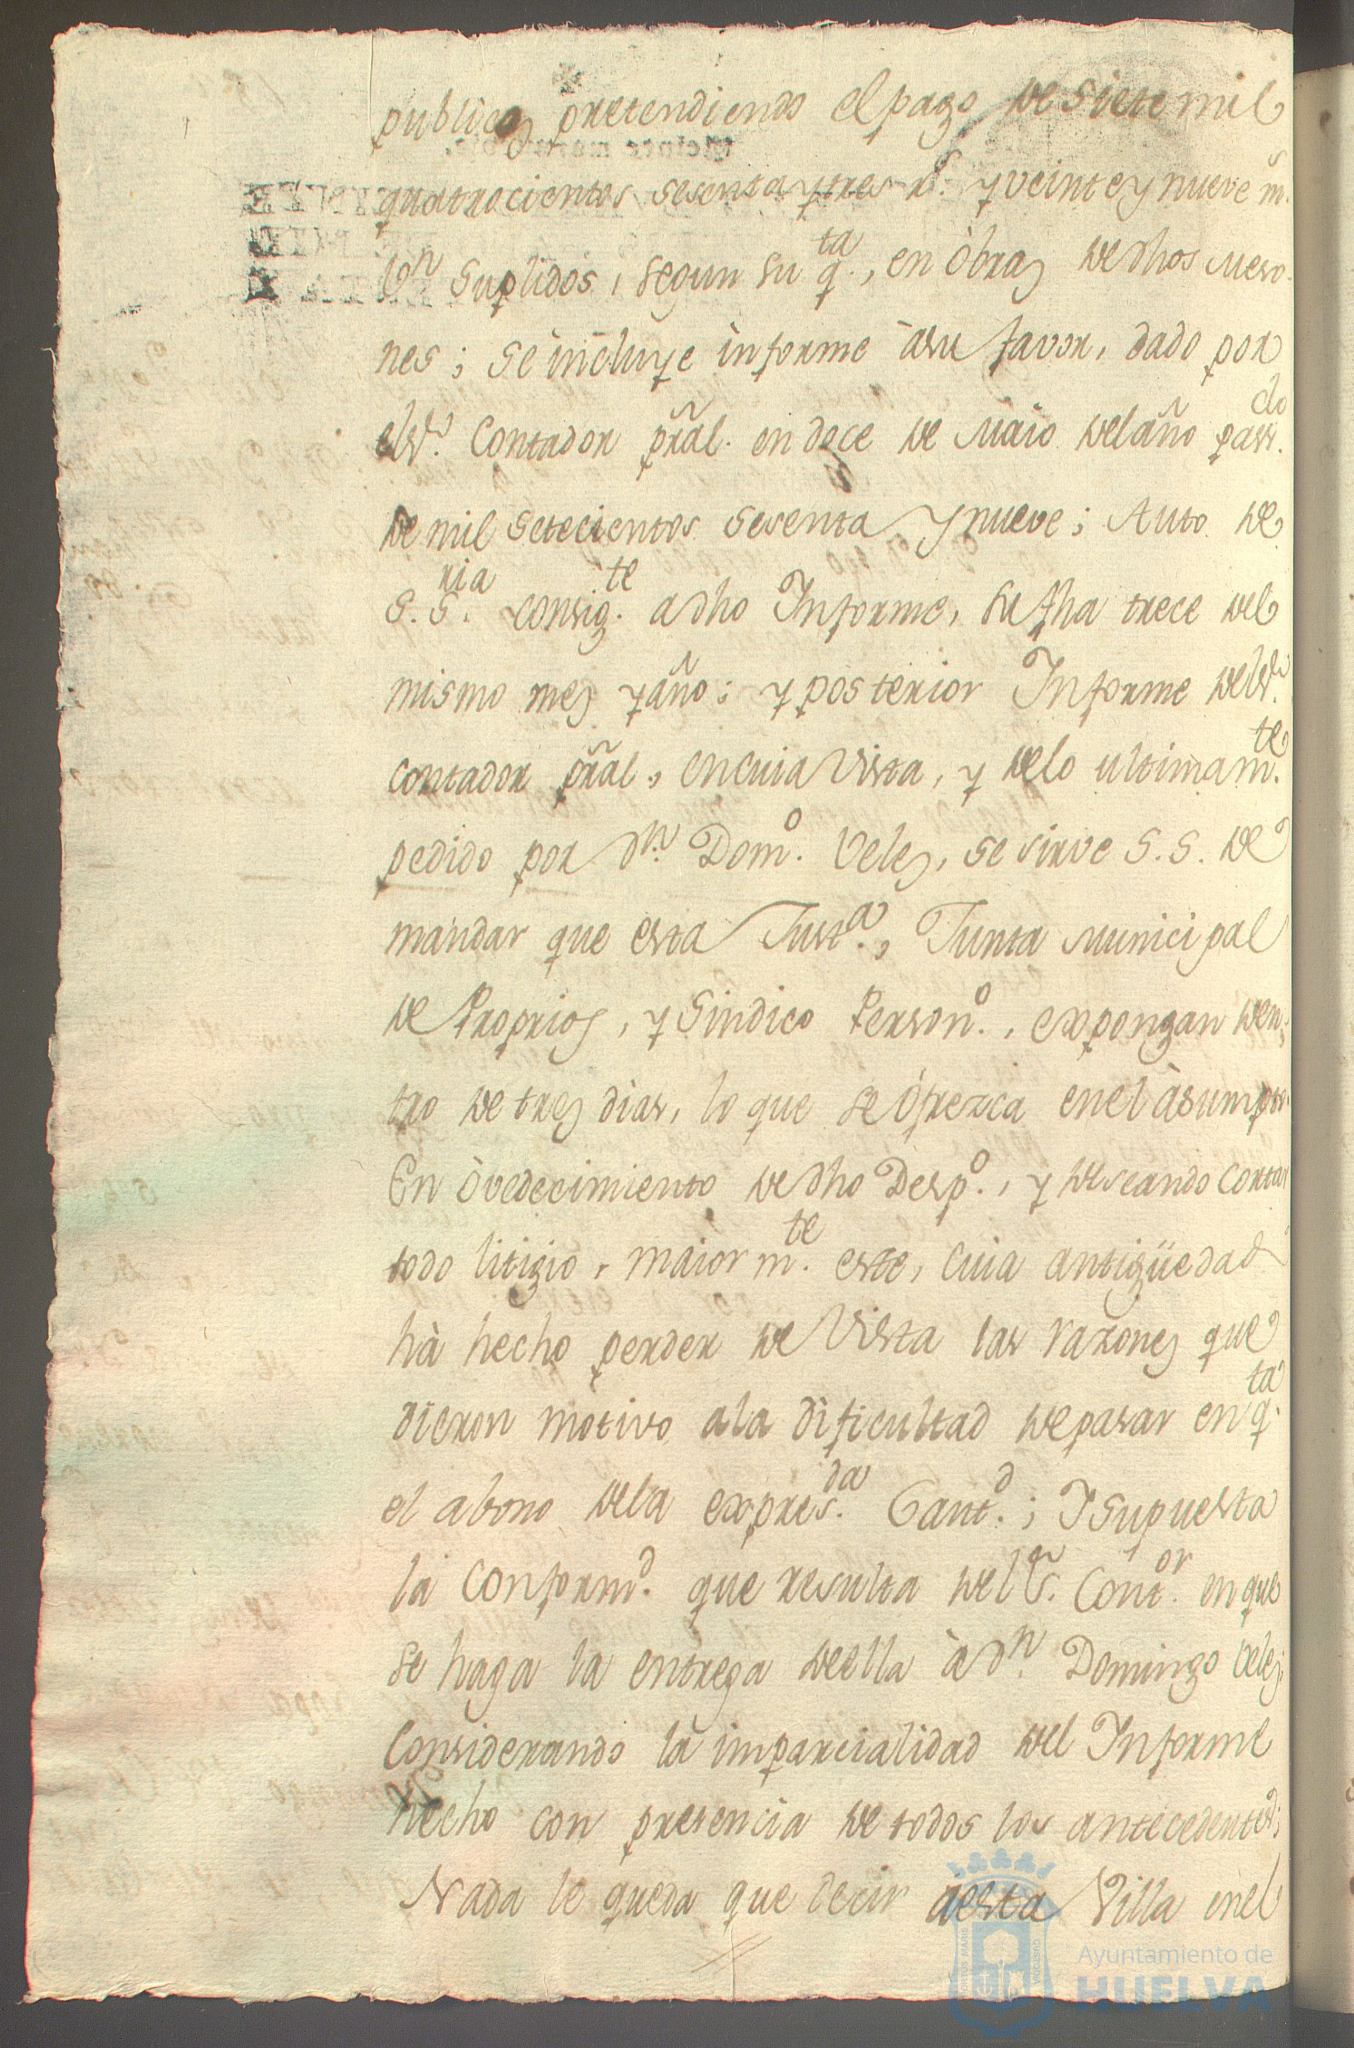 publicos, pretendiendo el pago de siete mil
quatrocientos sesenta y tres r.s y veinte y nueve m.s
Vn suplidos, segun su q.ta, en obras de dhos Meso-
nes; se incluye informe à su favor, dado por
el s.r Contador pñal. en doce de Maio del año pass.do
de mil setecientos sesenta y nueve; Auto de
S. S.ria consig.te a dho Informe, su fha trece del
mismo mes y año; y posterior Informe del s.r
contador pñal., en cuia Vista, y de lo ultimam.te
pedido por d.n Dom.o Veles, se sirve S. S. de
mandar que esta Just.a, Junta Municipal
de Proprios, y Sindico Person.o, expongan den-
tro de tres dias, lo que se ofrezca en el àsumpto.
En òvedecimiento de dho Desp.o, y deseando cortar
todo litigio, maiorm.te este, cuia antigüedad
hà hecho perder de Vista las razones que
dieron motivo a la dificultad de pasar en q.ta
el abono de la expres.da Cant.d; Y supuesta
la conform.d que resulta del S.r Cont.or en que
se haga la entrega de ella à d.n Domingo Veles;
Considerando la imparcialidad del Informe
hecho con presencia de todos los antecedentes;
Nada le queda que decir àesta Villa en el
Ayuntamiento de
HUELVA